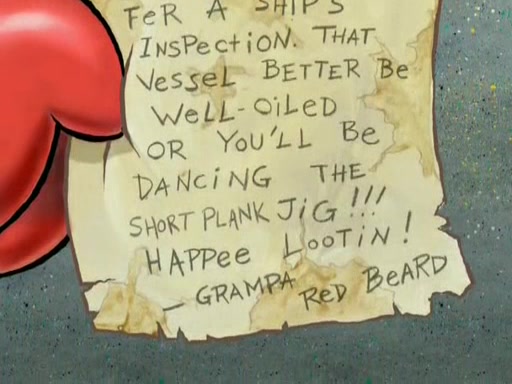 FeR A SHIP'S
INSPECTiON. THAT
VesseL BETTER Be
WeLL-OiLeD
OR YOU'LL Be
DANCiNG THE
SHORT PLANK JiG!!!
HAPPee LooTiN!
- GRAMPA ReD BeARD